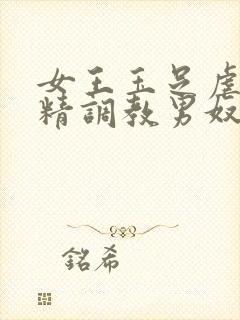 女王玉足虐
精調教男奴
銘希